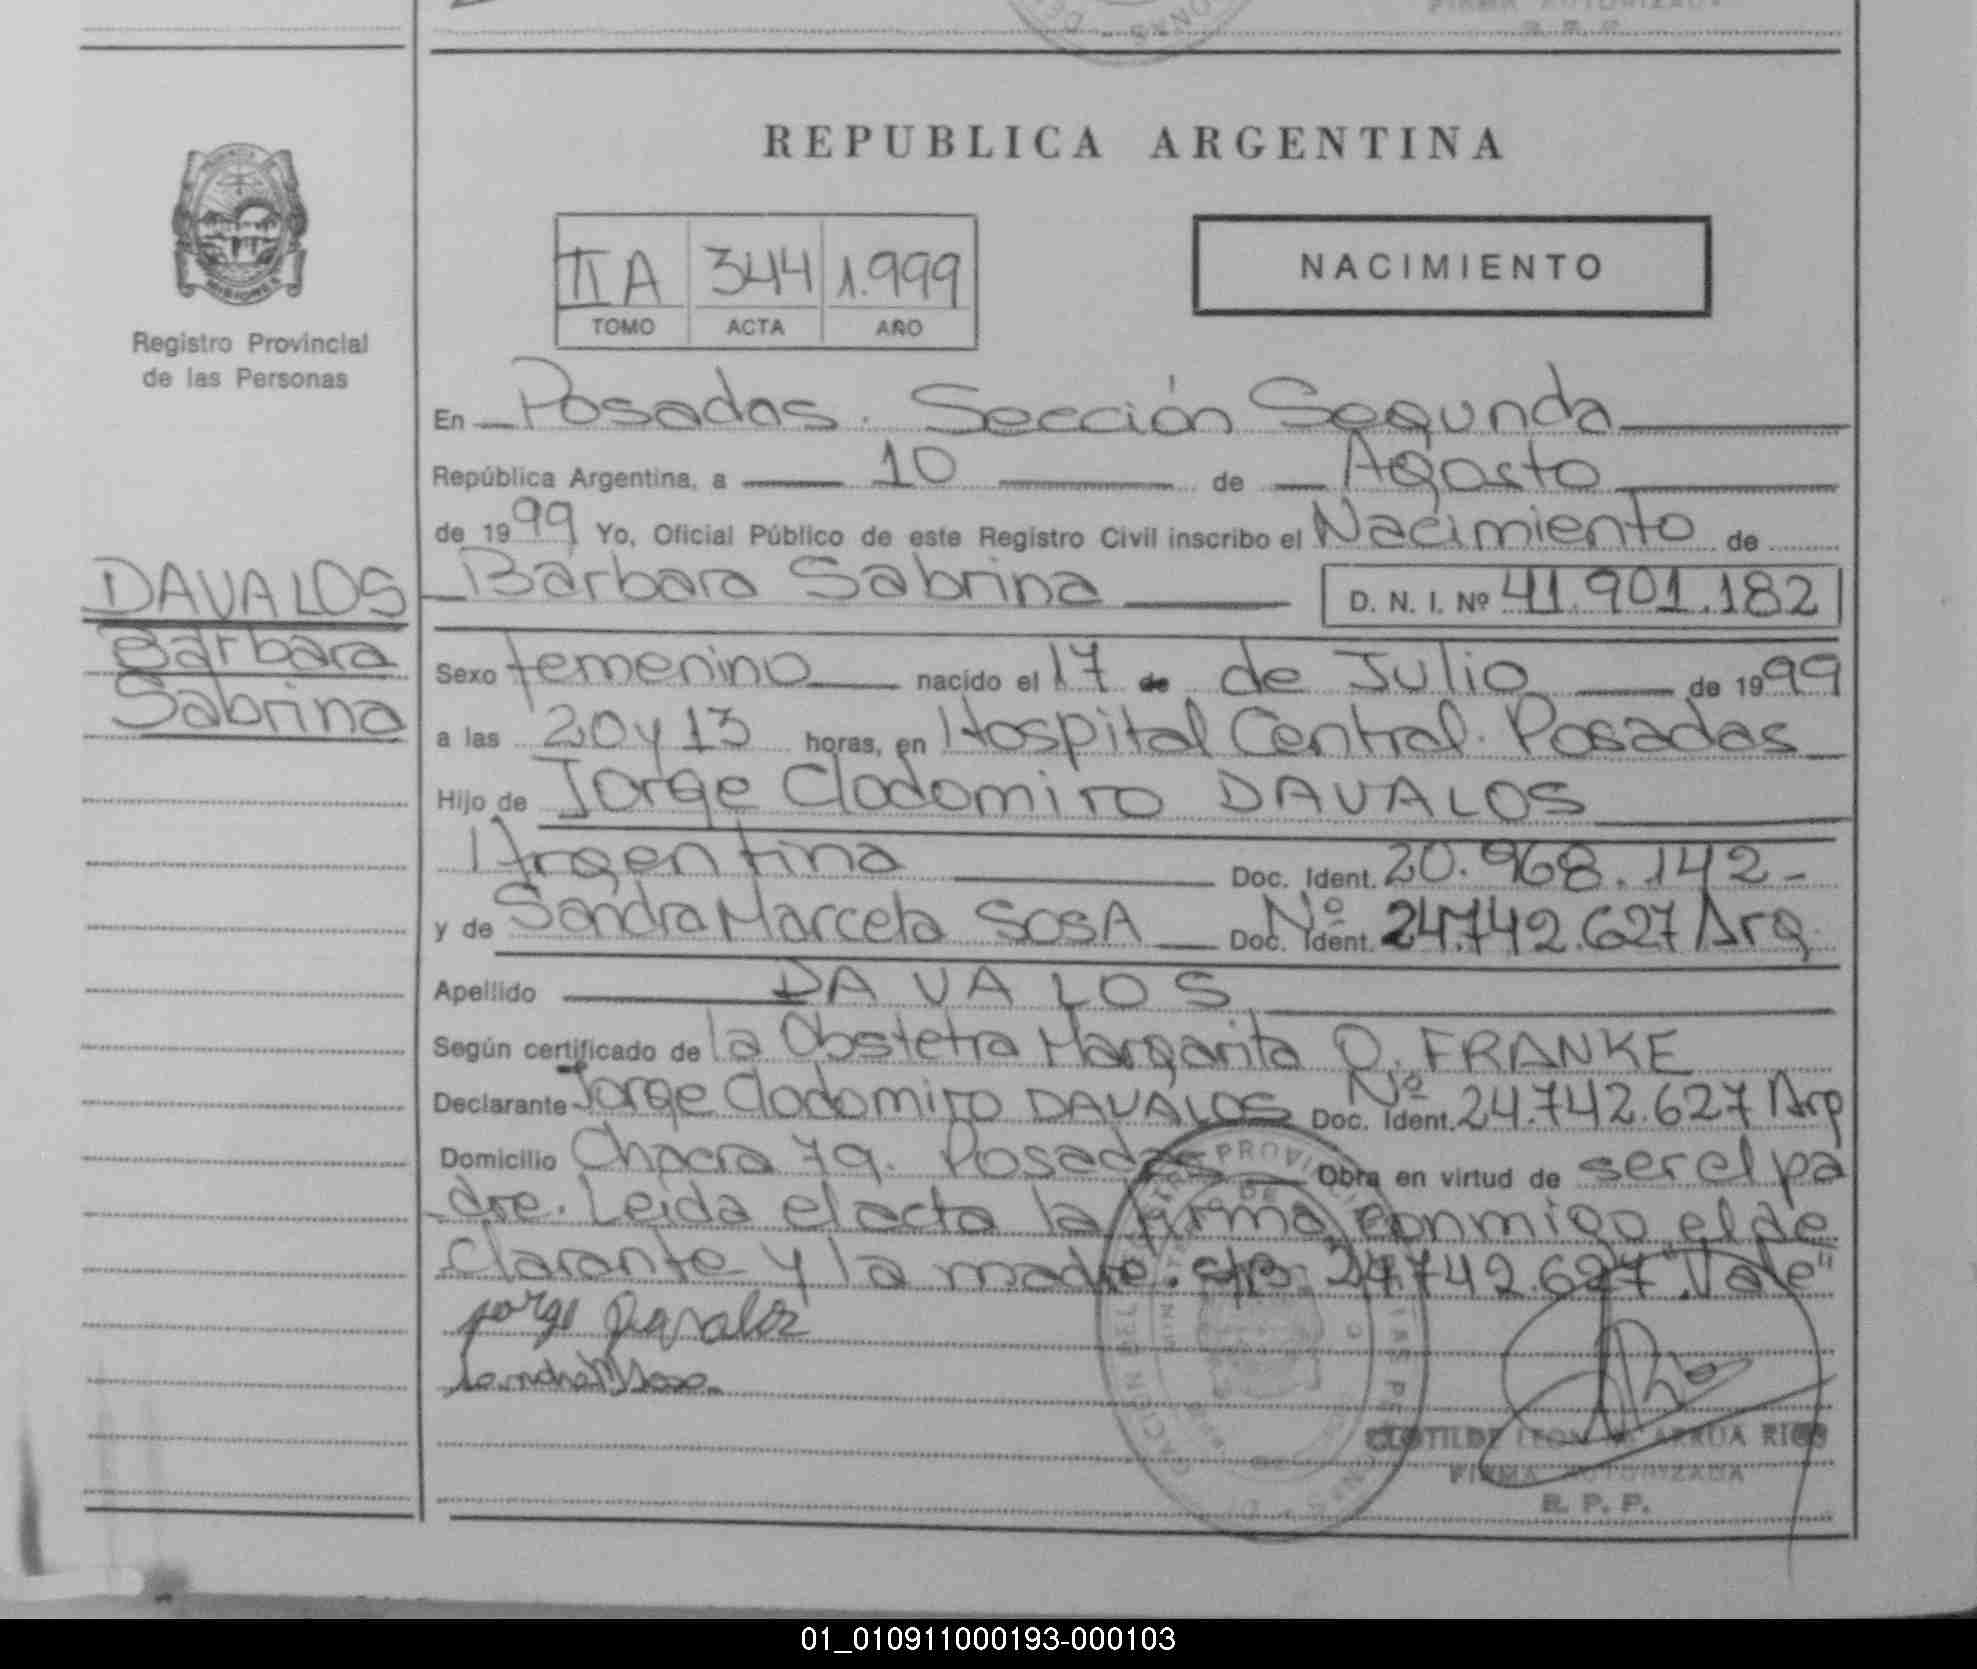 FIRMA AUTORIZADA
R. P. P.
REPUBLICA ARGENTINA
MISIONES
Registro Provincial
de las Personas
II A 344 1.999
TOMO ACTA AÑO
NACIMIENTO
En Posadas. Sección Segunda
República Argentina, a 10 de Agosto
de 1999 Yo, Oficial Público de este Registro Civil inscribo el Nacimiento de
DAVALOS
Bárbara
Sabrina
Bárbara Sabrina D. N. I. Nº 41.901.182
Sexo femenino nacido el 17 de de Julio de 1999
a las 20 y 13 horas, en Hospital Central. Posadas
Hijo de Jorge Clodomiro DAVALOS
Argentina Doc. Ident. 20.968.142-
y de Sandra Marcela SOSA Doc. Ident. Nº 24.742.627 Arg.
Apellido DAVALOS
Según certificado de la Obstetra Margarita O. FRANKE
Declarante Jorge Clodomiro DAVALOS Doc. Ident. Nº 24.742.627 Arg
Domicilio Chacra 79. Posadas Obra en virtud de ser el pa
dre. Leida el acta la firma conmigo el de
clarante y la madre. s/B. 24.742.627 "Vale"
Jorge Davalos
Sandra M Sosa
CLOTILDE LEON DE ARRUA RIOS
FIRMA AUTORIZADA
R. P. P.
01_010911000193-000103